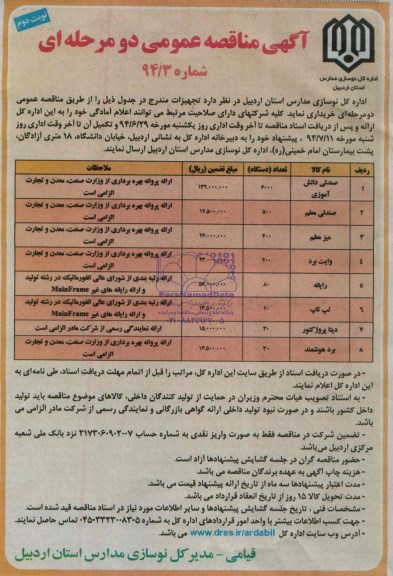 نوبت دوم
آگهی مناقصه عمومی دو مرحله ای
شماره ۹۴/۳
اداره کل نوسازی مدارس
استان اردبیل
اداره کل نوسازی مدارس استان اردبیل در نظر دارد تجهیزات مندرج در جدول ذیل را از طریق مناقصه عمومی
دو مرحله‌ای خریداری نماید. کلیه شرکتهای دارای صلاحیت مرتبط می توانند اعلام آمادگی خود را به این اداره کل
ارائه و پس از دریافت اسناد مناقصه تا آخر وقت اداری روز یکشنبه مورخه ۹۴/۶/۲۹ و تکمیل آن تا آخر وقت اداری روز
شنبه مورخه ۹۴/۷/۱۱ ، پیشنهاد خود را به دبیرخانه اداره کل به نشانی اردبیل، خیابان دانشگاه، ۱۸ متری آزادگان،
پشت بیمارستان امام خمینی(ره)، اداره کل نوسازی مدارس استان اردبیل ارسال نمایند.
ردیف نام کالا تعداد (دستگاه) مبلغ تضمین (ریال) ملاحظات
۱ صندلی دانش آموزی ۶۰۰۰ ۱۳۲,۰۰۰,۰۰۰ ارائه پروانه بهره برداری از وزارت صنعت، معدن و تجارت الزامی است
۲ صندلی معلم ۵۰۰ ۱۲,۵۰۰,۰۰۰ ارائه پروانه بهره برداری از وزارت صنعت، معدن و تجارت الزامی است
۳ میز معلم ۴۰۰ ۲۶,۰۰۰,۰۰۰ ارائه پروانه بهره برداری از وزارت صنعت، معدن و تجارت الزامی است
۴ وایت برد ارائه پروانه بهره برداری از وزارت صنعت، معدن و تجارت الزامی است
۵ رایانه ۸۰ ارائه رتبه بندی از شورای عالی انفورماتیک در رشته تولید و ارائه رایانه های غیر MainFrame
۶ لپ تاپ ارائه رتبه بندی از شورای عالی انفورماتیک در رشته تولید و ارائه رایانه های غیر MainFrame
۷ دیتا پروژکتور ۳۰ ۱۵,۰۰۰,۰۰۰ ارائه نمایندگی رسمی از شرکت مادر الزامی است
۸ برد هوشمند ۳۰ ۱۶,۵۰۰,۰۰۰ ارائه پروانه بهره برداری از وزارت صنعت، معدن و تجارت الزامی است
- در صورت دریافت اسناد از طریق سایت این اداره کل، مراتب را قبل از اتمام مهلت دریافت اسناد، طی نامه‌ای به
این اداره کل اعلام نمایند.
- به استناد تصویب هیات محترم وزیران در حمایت از تولید کنندگان داخلی، کالاهای موضوع مناقصه باید تولید
داخل کشور باشند و در صورت نبود تولید داخلی ارائه گواهی بازرگانی و نمایندگی رسمی از شرکت مادر الزامی می
باشد.
- تضمین شرکت در مناقصه فقط به صورت واریز نقدی به شماره حساب ۲۱۷۳۰۶۰۹۰۲۰۰۷ نزد بانک ملی شعبه
مرکزی اردبیل می‌باشد.
- حضور مناقصه گران در جلسه گشایش پیشنهادها آزاد است.
- هزینه چاپ آگهی به عهده برندگان مناقصه می باشد.
- مدت اعتبار پیشنهادها سه ماه از تاریخ ارائه پیشنهاد قیمت می باشد.
- مدت تحویل کالا ۱۵ روز از تاریخ انعقاد قرارداد می باشد.
- مشخصات فنی ، تاریخ جلسه گشایش پیشنهادها و سایر اطلاعات مورد نیاز در اسناد مناقصه قید شده است.
- جهت کسب اطلاعات بیشتر با واحد امور قراردادهای اداره کل به شماره ۰۴۵-۳۳۲۳۰۰۸۳۰۵ تماس حاصل نمایند.
- آدرس وب سایت اداره کل www.dres.ir/ardabil می باشد.
قیامی - مدیر کل نوسازی مدارس استان اردبیل